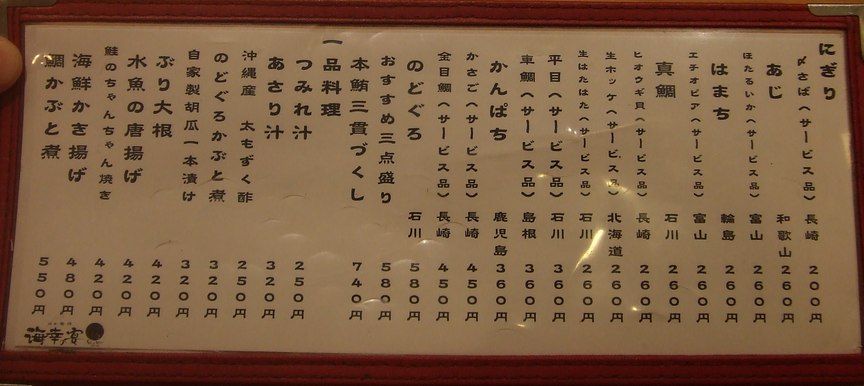 にぎり
〆さば(サービス品) 長崎 200円
あじ 和歌山 260円
ほたるいか(サービス品) 富山 260円
はまち 輪島 260円
エチオピア(サービス品) 富山 260円
真鯛 石川 260円
ヒオウギ貝(サービス品) 長崎 260円
生ホッケ(サービス品) 北海道 260円
生はたはた(サービス品) 石川 260円
平目(サービス品) 石川 360円
車鯛(サービス品) 島根 360円
かんぱち 鹿児島 360円
かさご(サービス品) 長崎 450円
金目鯛(サービス品) 長崎 450円
のどぐろ 石川 580円
おすすめ三点盛り 580円
本鮪三貫づくし 740円
一品料理
つみれ汁 250円
あさり汁 320円
沖縄産 太もずく酢 250円
のどぐろかぶと煮 320円
自家製胡瓜一本漬け 320円
ぶり大根 420円
水魚の唐揚げ 420円
鮭のちゃんちゃん焼き 420円
海鮮かき揚げ 480円
鯛かぶと煮 550円
海幸宴